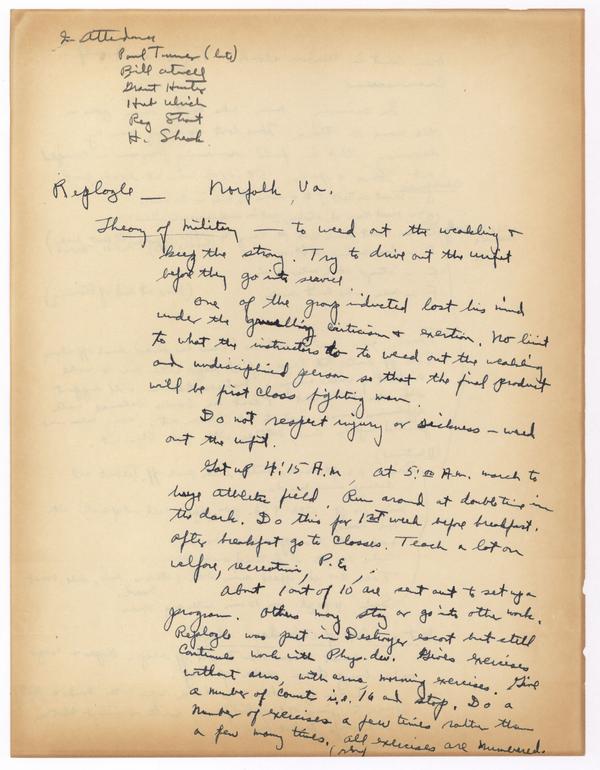 In Attendance
Paul Turner (late)
Bill Atwell
Grant Hunter
Hub Ulrich
Reg Strait
H. Shenk
Replogle — Norfolk, Va.
Theory of Military — to weed out the weakling &
keep the strong. Try to drive out the unfit
before they go into service.
One of the group inducted lost his mind
under the gruelling criticism & exertion. No limit
to what the instructors do to weed out the weakling
and undisciplined person so that the final product
will be first class fighting men.
Do not respect injury or sickness — weed
out the unfit.
Get up 4:15 A.M. At 5:00 A.M. march to
large athletic field. Run around at double time in
the dark. Do this for 1st week before breakfast.
After breakfast go to classes. Teach a lot on
welfare, recreation, P.E.
About 1 out of 10 are sent out to set up a
program. Others may stay or go into other work.
Replogle was put in Destroyer escort but still
continues work with Phys. dev. Gives exercises
without arms, with arms morning exercises. Give
a number of counts i.e. 16 and stop. Do a
number of exercises a few times rather than
a few many times. All exercises are numbered.